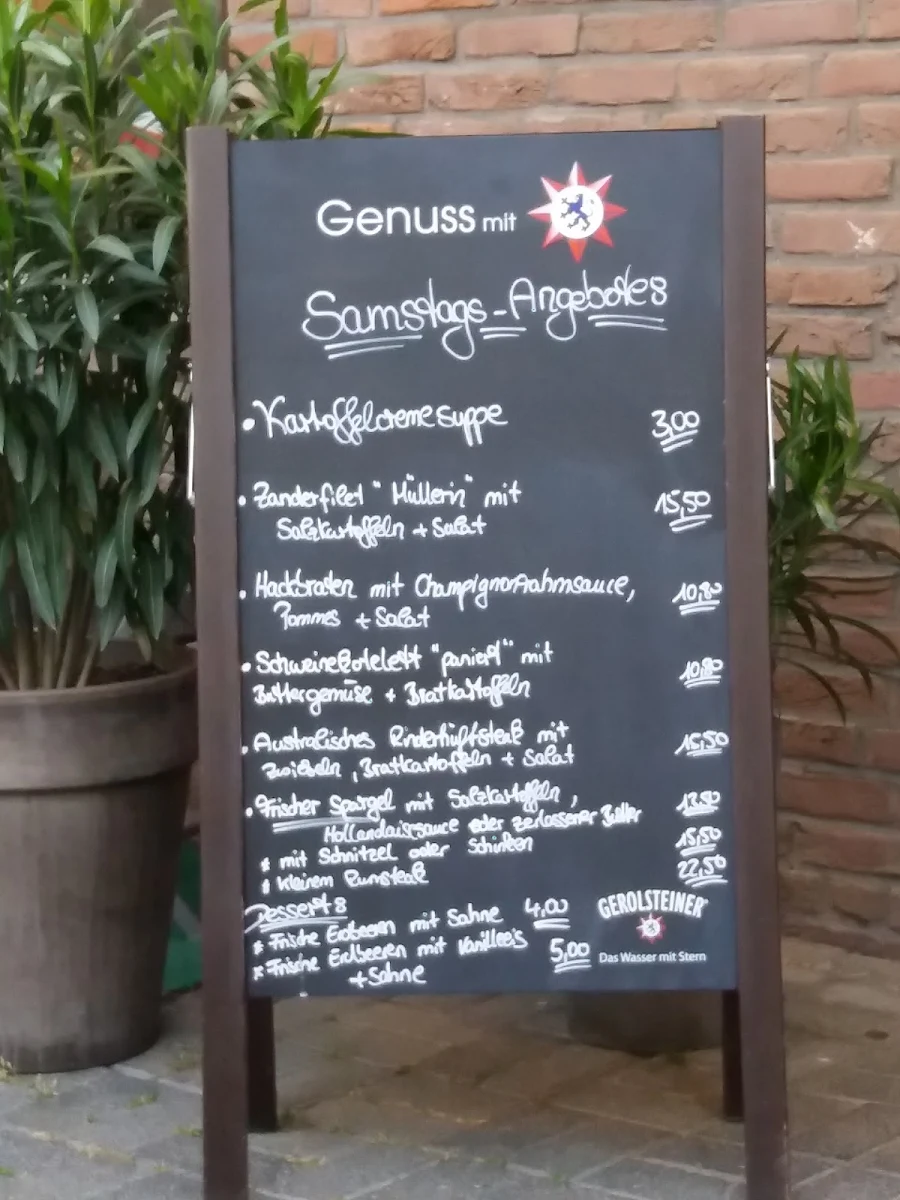 Genuss mit
Samstags-Angebote
• Kartoffelcremesuppe 3,00
• Zanderfilet "Müllerin" mit 15,50
Salzkartoffeln + Salat
• Hackbraten mit Champignonrahmsauce, 10,80
Pommes + Salat
• Schweinekotelett "paniert" mit 10,80
Buttergemüse + Bratkartoffeln
• Australisches Rinderhüftsteak mit 15,50
Zwiebeln, Bratkartoffeln + Salat
• Frischer Spargel mit Salzkartoffeln, 13,50
Hollandaisesauce oder zerlassener Butter
* mit Schnitzel oder Schinken 15,50
* kleinem Rumsteak 22,50
Dessert
* Frische Erdbeeren mit Sahne 4,00
* Frische Erdbeeren mit Vanilleeis 5,00
+ Sahne
GEROLSTEINER
Das Wasser mit Stern